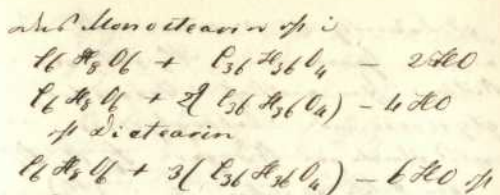 Monostearin
C6 H8 O6 + C36 H36 O4 – 2 HO
C6 H8 O6 + 2( C36 H36 O4) – 4 HO
Distearin
C6 H8 O6 + 3( C36 H36 O4) – 6 HO